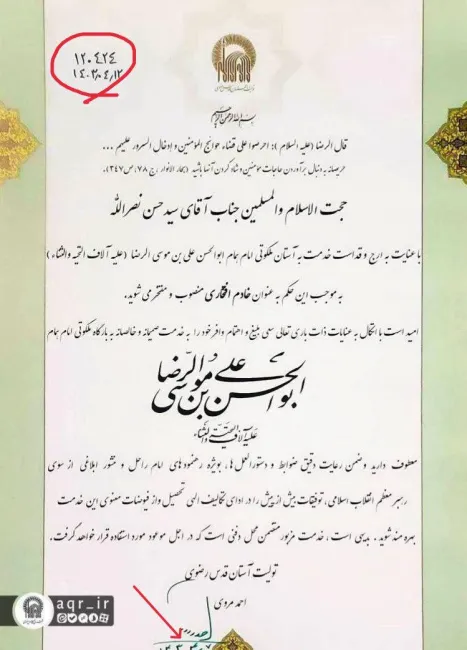 ۱۲۰۴۲۴
۱۴۰۳/۰۴/۱۲
بسم الله الرحمن الرحیم
قال الرضا (علیه السلام): احرصوا علی قضاء حوائج المؤمنین و إدخال السرور علیهم ...
حریصانه به دنبال برآوردن حاجات مؤمنین و شاد کردن آنها باشید (بحار الانوار، ج ۷۸، ص ۳۴۷)
حجت الاسلام والمسلمین جناب آقای سید حسن نصرالله
با عنایت به ارج و قداست خدمت به آستان ملکوتی امام همام ابوالحسن علی بن موسی الرضا (علیه آلاف التحیه والثناء)
به موجب این حکم به عنوان خادم افتخاری منصوب و مفتخر می شوید.
امید است با اتکال به عنایات ذات باری تعالی سعی بلیغ و اهتمام وافر خود را به خدمت صمیمانه و خالصانه به بارگاه ملکوتی امام همام
ابوالحسن علی بن موسی الرضا
علیه آلاف التحیة والثناء
معطوف دارید و ضمن رعایت دقیق ضوابط و دستورالعمل ها، بویژه رهنمودهای امام راحل و منشور ابلاغی از سوی
رهبر معظم انقلاب اسلامی، توفیقات بیش از پیش را در ادای تکالیف الهی تحصیل و از فیوضات معنوی این خدمت
بهره مند شوید. بدیهی است، خدمت مزبور متضمن محل دفنی است که در اجل موعود مورد استفاده قرار خواهد گرفت.
تولیت آستان قدس رضوی
احمد مروی
aqr_ir